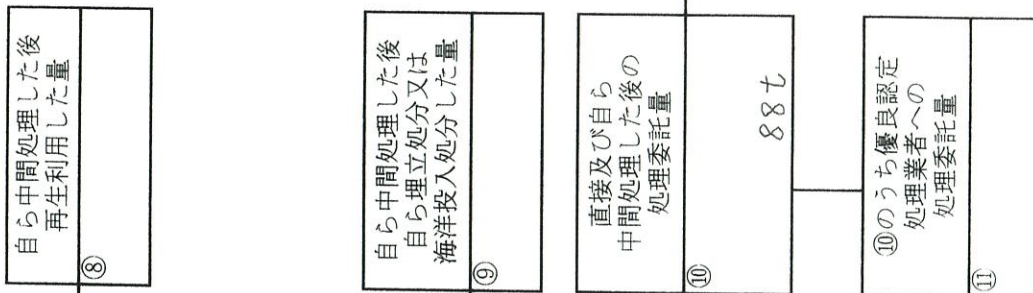 自ら中間処理した後
再生利用した量
⑧
自ら中間処理した後
自ら埋立処分又は
海洋投入処分した量
⑨
直接及び自ら
中間処理した後の
処理委託量
⑩
88t
⑩のうち優良認定
処理業者への
処理委託量
⑪